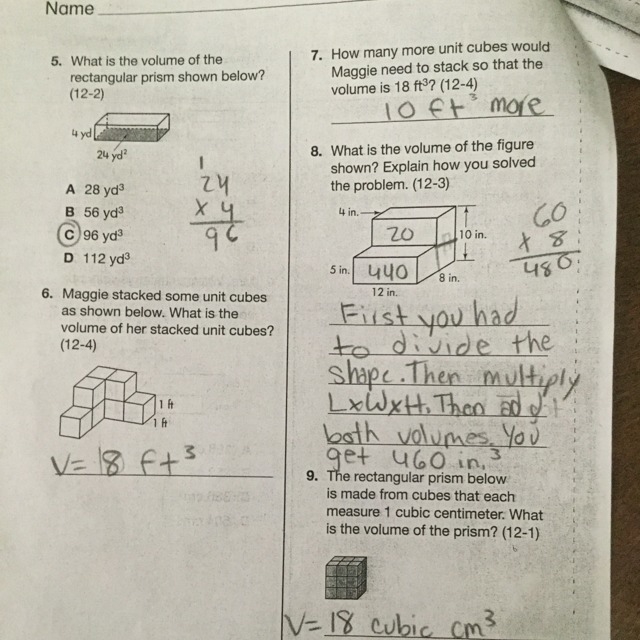 Name
5. What is the volume of the
rectangular prism shown below?
(12-2)
4 yd
24 yd²
A 28 yd³
B 56 yd³
C 96 yd³
D 112 yd³
1
24
x 4
96
6. Maggie stacked some unit cubes
as shown below. What is the
volume of her stacked unit cubes?
(12-4)
1 ft
1 ft
V= 18 ft³
7. How many more unit cubes would
Maggie need to stack so that the
volume is 18 ft³? (12-4)
10 ft³ more
8. What is the volume of the figure
shown? Explain how you solved
the problem. (12-3)
4 in.
20
10 in.
5 in.
440
8 in.
12 in.
60
x 8
480
First you had
to divide the
shape. Then multiply
LxWxH. Then add it
both volumes. You
get 460 in.³
9. The rectangular prism below
is made from cubes that each
measure 1 cubic centimeter. What
is the volume of the prism? (12-1)
V= 18 cubic cm³